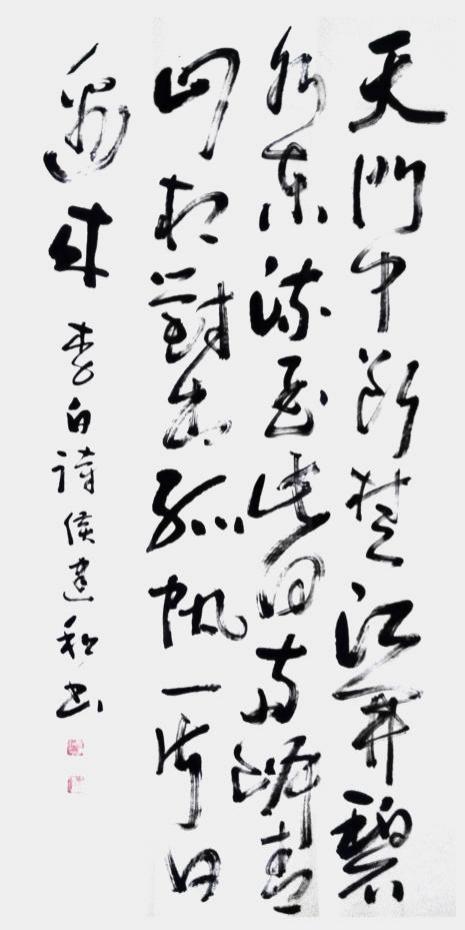 天門中断楚江開碧
水東流至此回两岸青
山相對出孤帆一片日
邊來
李白詩侯建和書